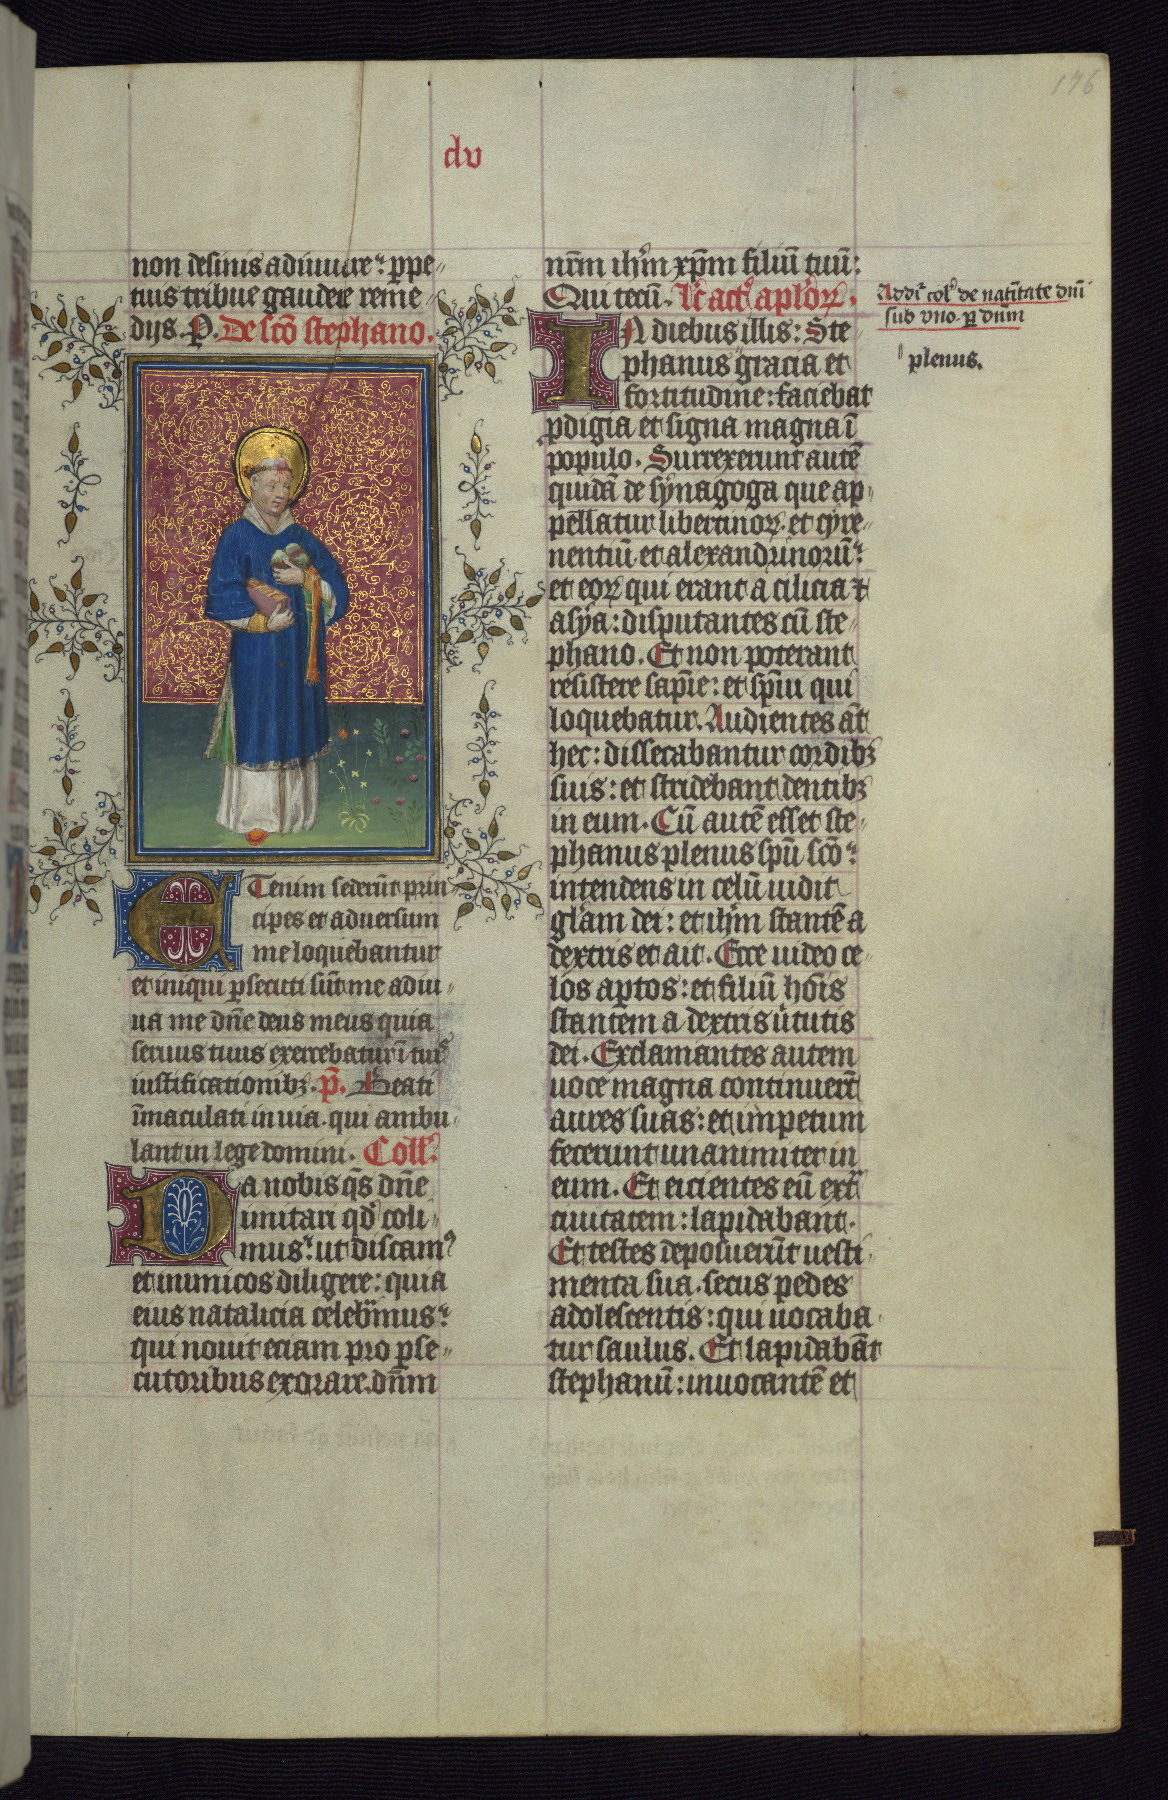 176
du
non desinis adiuuare: ꝑpe
tuis tribue gaudere reme
dijs. P. De sc̄o stephano.
ETenim sederūt prin
cipes et aduersum
me loquebantur
et iniqui ꝑsecuti sūt me adiu
ua me dn̄e deus meus quia
seruus tuus exercebatur ī tuis
iustificationibꝫ. p̄s. Beati
īmaculati in uia. qui ambu
lant in lege domini. Coll.
DA nobis qs̄ dn̄e
imitari qd̓ coli
mus: ut discamꝰ
et inimicos diligere: quia
eius natalicia celebramus:
qui nouit eciam pro ꝑse
cutoribus exorare. dn̄m
nr̄m ih̄m xp̄m filiū tuū:
Qui tecū. Lc̄ act̓ aplōꝝ.
IN diebus illis: Ste
phanus gracia et
fortitudine: faciebat
ꝓdigia et signa magna ī
populo. Surrexerunt autē
quidā de synagoga que ap
pellatur libertinoꝝ. et cyre
nentiū. et alexandrinorū:
et eoꝝ qui erant a cilicia ⁊
asya: disputantes cū ste
phano. Et non poterant
resistere sapīe: et sp̄ui qui
loquebatur. Audientes āt
hec: dissecabantur cordibꝫ
suis: et stridebant dentibꝫ
in eum. Cū autē esset ste
phanus plenus sp̄u sc̄o:
intendens in celū uidit
gl̄am dei: et ih̄m stantē a
dextris et ait. Ecce uideo ce
los aꝑtos: et filiū hoīs
stantem a dextris uirtutis
dei. Exclamantes autem
uoce magna continuerūt
aures suas: et impetum
fecerunt unanimiter in
eum. Et eicientes eū extra
ciuitatem: lapidabant.
Et testes deposuerūt uesti
menta sua. secus pedes
adolescentis: qui uocaba
tur saulus. Et lapidabāt
stephanū: inuocantē et
Addit̓ col̓ de natītate dn̄i
sub vno. ꝑ dnm
plenus.